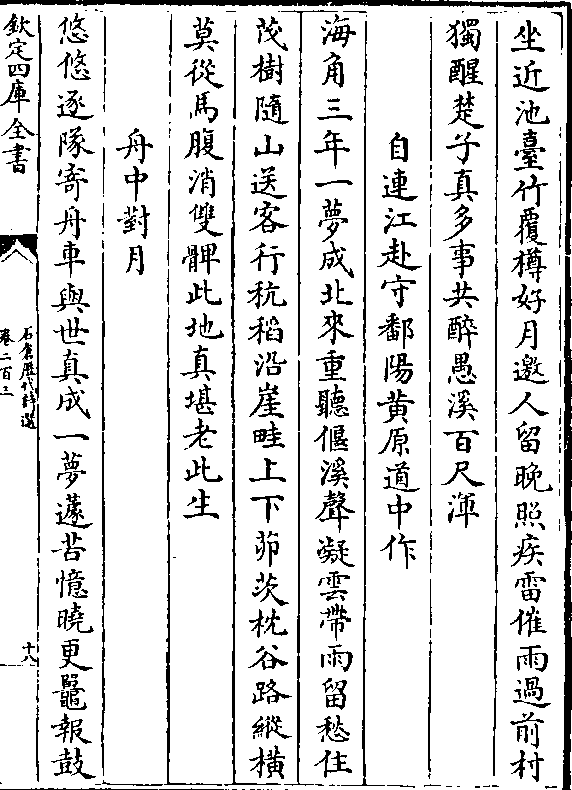 坐近池臺竹覆樽好月邀人留晚照疾雷催雨過前村
獨醒楚子真多事共醉愚溪百尺渾
自連江赴守鄱陽黄原道中作
海角三年一夢成北來重聽偃溪聲凝雲帶雨留愁住
茂樹隨山送客行秔稻沿崖畦上下茆茨枕谷路縱横
莫從馬腹消雙髀此地真堪老此生
舟中對月
悠悠逐隊寄舟車與世真成一夢蘧苦憶曉更鼉報鼓
欽定四庫全書
石倉歷代詩選
卷二百三
十八